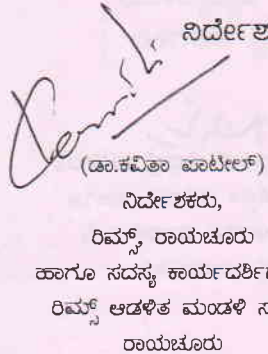 ನಿರ್ದೇಶ
(ಡಾ.ಕವಿತಾ ಪಾಟೀಲ್)
ನಿರ್ದೇಶಕರು,
ರಿಮ್ಸ್, ರಾಯಚೂರು
ಹಾಗೂ ಸದಸ್ಯ ಕಾರ್ಯದರ್ಶಿ
ರಿಮ್ಸ್ ಆಡಳಿತ ಮಂಡಳಿ ಸ
ರಾಯಚೂರು